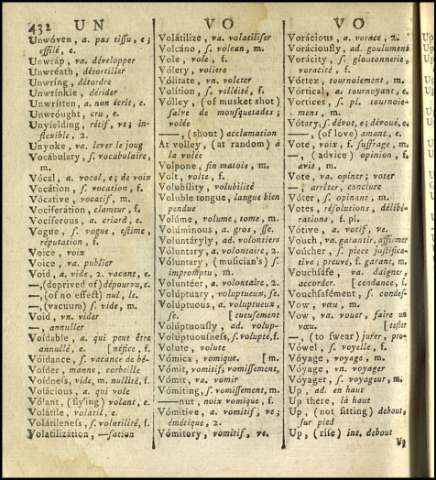 432 UN
Unwóven, a. pas tissu, e;
effilé, e.
Unwráp, va. développer
Unwréath, détortiller
Unwríng, détordre
Unwrínkle, dérider
Unwrítten, a. non écrit, e.
Unwróught, cru, e.
Unyíelding, rétif, ve; in-
flexible, 2.
Unyoke, va. lever le joug
Vocábulary, s. vocabulaire,
m.
Vócal, a. vocal, e; de voix
Vocátion, s. vocation, f.
Vócative, vocatif, m.
Vociferátion, clameur, f.
Vocíferous, a. criard, e.
Vogue, s. vogue, estime,
réputation, f.
Voice, voix
Voice, va. publier
Void, a. vide, 2. vacant, e.
—, (deprived of) dépourvu, e.
—, (of no effect) nul, le.
—, (vacuum) s. vide, m.
Void, vn. vider
—, annuller
Voídable, a. qui peut être
annullé, e. [néfice, f.
Voídance, s. vacance de bé-
Voíder, manne, corbeille
Voídness, vide, m. nullité, f.
Volácious, a. qui vole
Vólant, (flying) volant, e.
Vólatile, volatil, e.
Vólatileness, s. volatilité, f.
Volatilizátion, —sation
VO
Vólatilize, va. volatiliser
Volcáno, s. volcan, m.
Vole, vole, f.
Vólery, voliere
Vólitate, vn. voleter
Volítion, s. velléité, f.
Vólley, (of musket shot)
salve de mousquetades;
volée
—, (shout) acclamation
At volley, (at random) à
la volée
Volpone, fin matois, m.
Volt, volte, f.
Volubílity, volubilité
Voluble tongue, langue bien
pendue
Volúme, volume, tome, m.
Volúminous, a. gros, sse.
Vóluntáryly, ad. volontiers
Vóluntary, a. volontaire, 2.
Vóluntary, (musician's) s.
impromptu, m.
Voluntéer, a. volontaire, 2.
Voluptuary, voluptueux, se.
Volúptuous, a. voluptueux,
se. [tueusement
Volúptuously, ad. volup-
Volúptuousness, s. volupté, f.
Volute, volute
Vómica, vomique. [m.
Vómit, vomitif, vomissement,
Vómit, va. vomir
Vómiting, s. vomissement, m.
—nut, noix vomique, f.
Vómitive, a. vomitif, ve;
émétique, 2.
Vómitory, vomitif, ve.
VO
Vorácious, a. vorace, 2.
Voráciously, ad. goulument
Vorácity, s. gloutonnerie,
voracité, f.
Vórtex, tournoiement, m.
Vórtical, a. tournoyant, e.
Vortices, s. pl. tournoie-
mens, m.
Vótary, s. dévot, e; dévoué, e.
— (of love) amant, e.
Vote, voix, f. suffrage, m.
—, (advice) opinion, f.
avis, m.
Vote, va. opiner; voter
—, arrêter, conclure
Vóter, s. opinant, m.
Votes, résolutions, délibé-
rations, f. pl.
Vótive, a. votif, ve.
Vouch, va. garantir, affirmer
Voúcher, s. piece justifica-
tive; preuve, f. garant, m.
Vouchsáfe, va. daigner,
accorder. [cendance, f.
Vouchsáfement, s. condes-
Vow, vœu, m.
Vow, va. vouer, faire un
vœu. [tester
—, (to swear) jurer, pro-
Vówel, s. voyelle, f.
Vóyage, voyage, m.
Vóyage, vn. voyager
Vóyager, s. voyageur, m.
Up, ad. en haut
Up there, là haut
Up, (not sitting) debout,
sur pied
Up, (rise) int. debout
Up